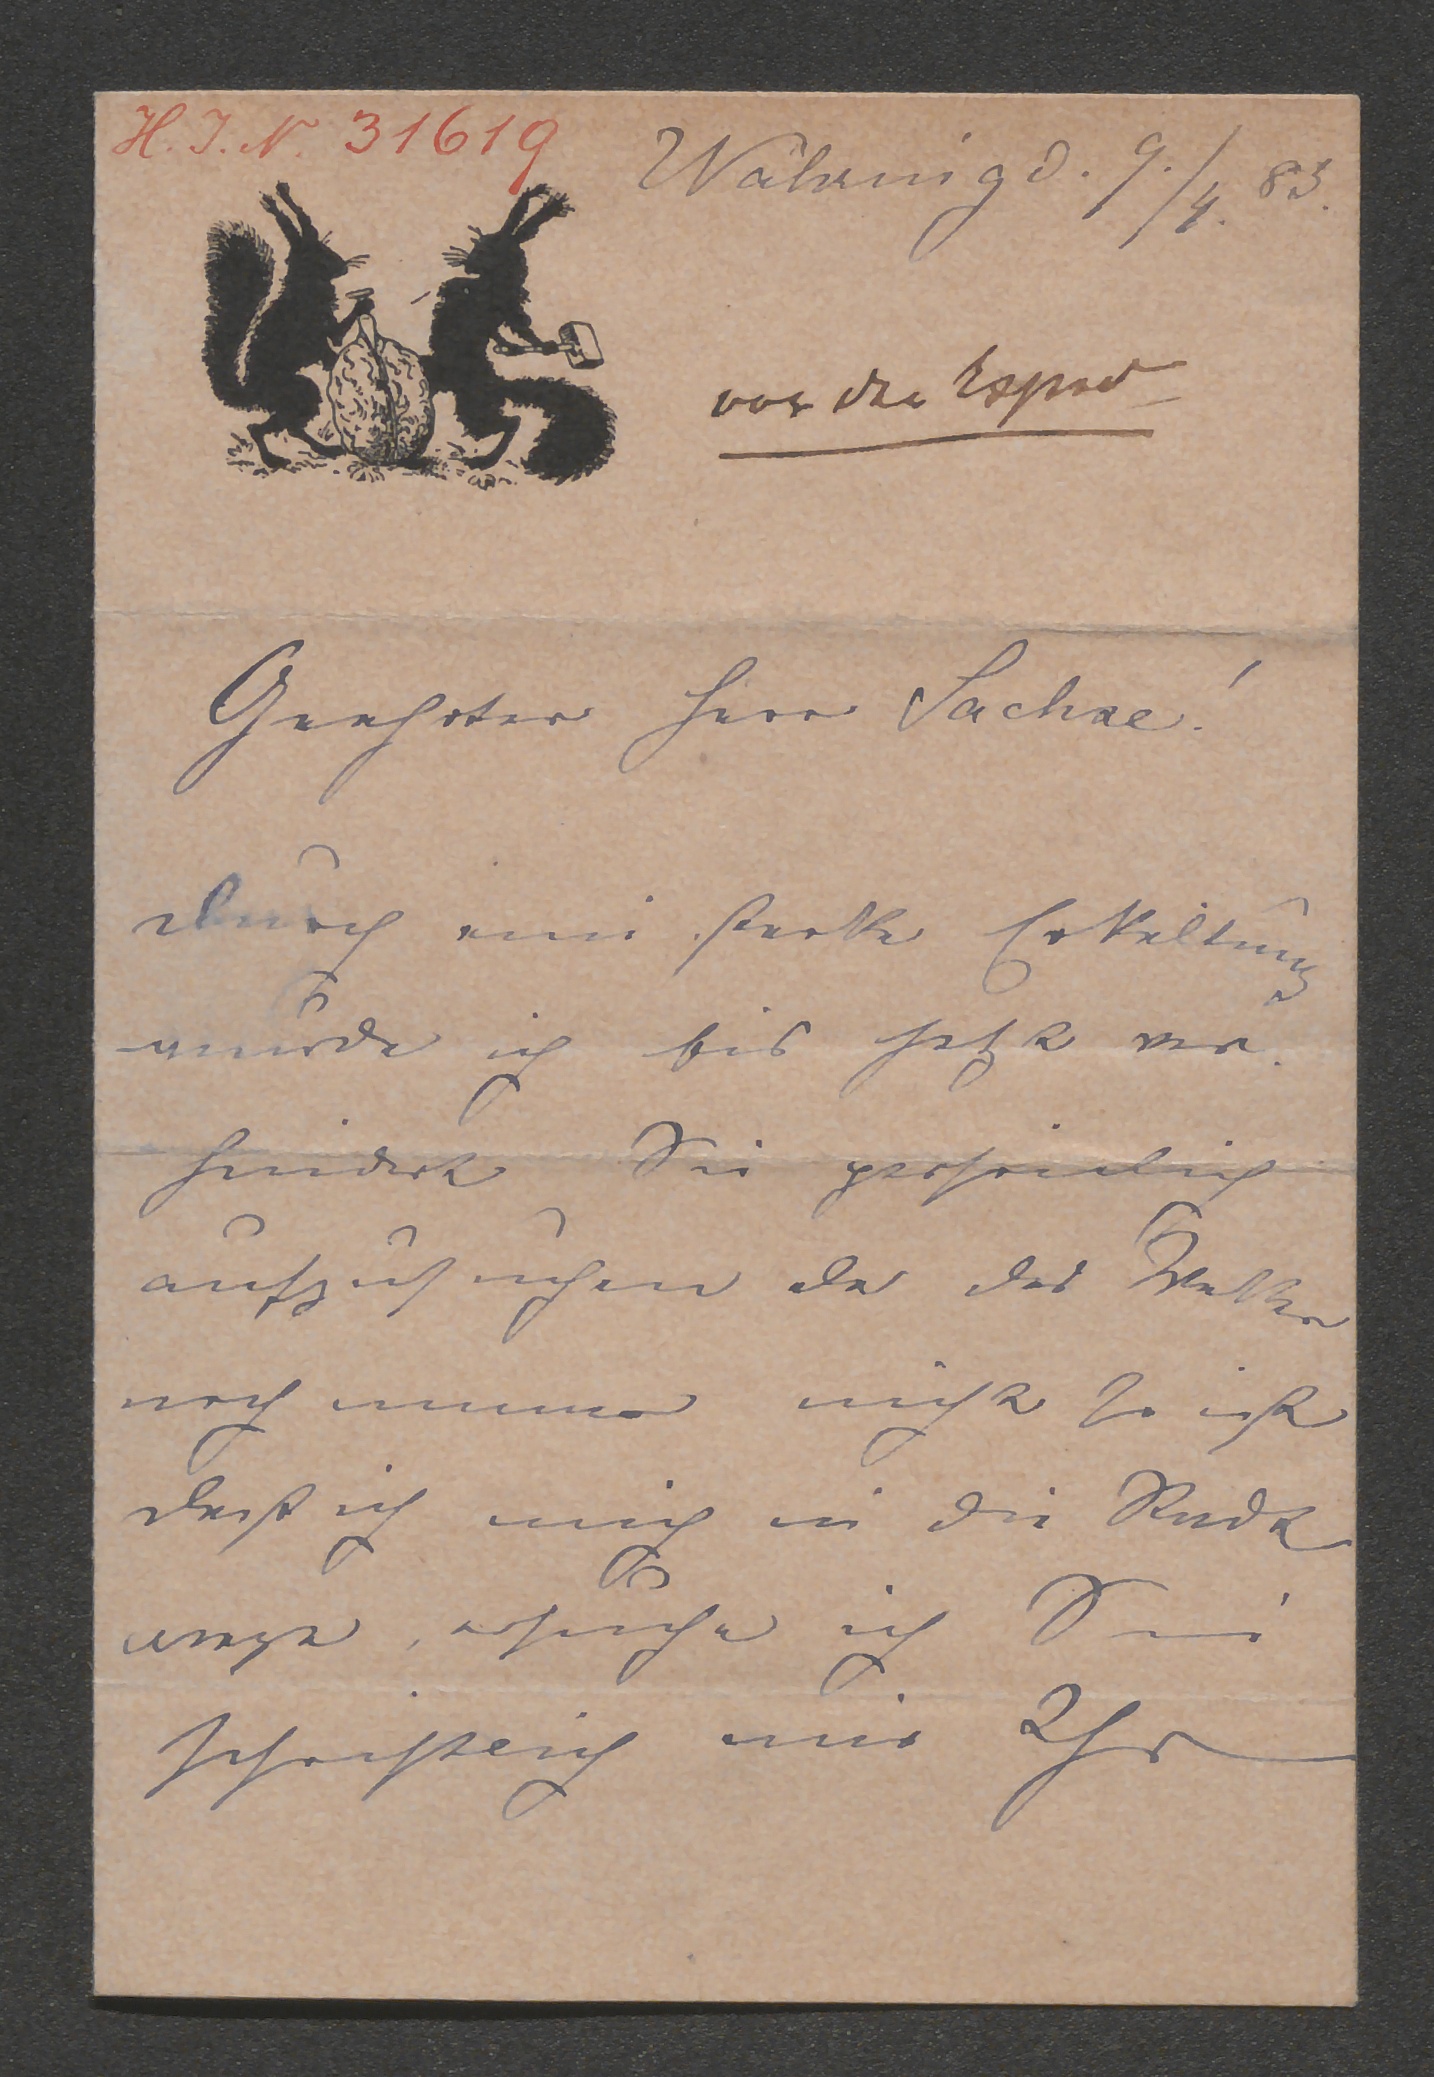 H. J. N. 31619
Währing d. 9./4. 83.
vor der Exped
Geehrter Herr Sachse!
Durch eine starke Erkältung
wurde ich bis jetzt ver-
hindert Sie persönlich
aufzusuchen da das Wetter
noch immer nicht so ist
daß ich mich in die Stadt
wage, ersuche ich Sie
schriftlich mir Ihr